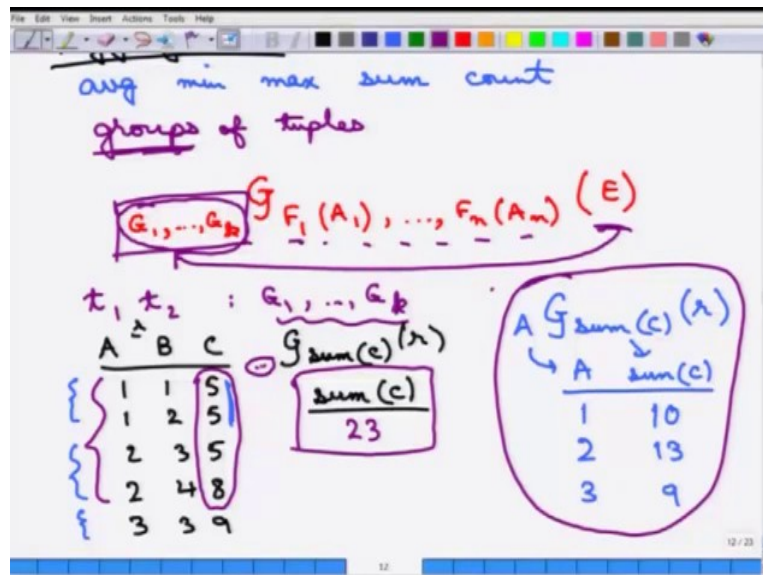 File Edit View Insert Actions Tools Help
avg min max sum count
groups of tuples
G₁, ..., Gₖ 𝒢 F₁(A₁), ..., Fₙ(Aₙ) (E)
t₁ t₂ : G₁, ..., Gₖ
r
A B C
1 1 5
1 2 5
2 3 5
2 4 8
3 3 9
𝒢 sum(c) (r)
sum(c)
23
A 𝒢 sum(c) (r)
A sum(c)
1 10
2 13
3 9
12 / 23
12